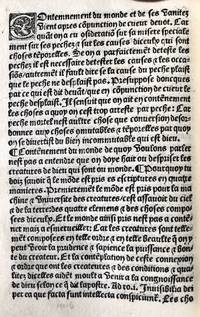 Contemnement du monde et de ses vanitez
vient apres cõpunction de cueur devot. Car
quãt on a eu displaisir sur sa misere speciale
ment sur ses pechez & sur les causes diceulx qui sont
choses tẽporelles. Se on a parfaictemẽt deteste les
pechez il est necessaire detester les causes & les occa
siõs/autremẽt il fault dire se la cause du peche plaist
que le peche ne desplaist pas. Presuppose doncques
par ce qui est dit devãt/que en cõpunction le peche
desplaist. Il sensuit que on ait en contẽnement
les choses a quoy on cest trop arreste par peche: Car
peche mortel nest autre chose que conversion desor
donnee aux choses cõmutables & tẽporelles par quoy
on se divertist du bien incommutable qui est dieu.
¶ Contẽnement du monde de quoy voulons parler
nest pas a entendre que on doye hair ou despriser les
creatures de dieu qui sont au monde. ¶ Pourquoy tu
dois sçavoir q̃ le mõde est pris es escriptures en quatre
manieres. Premieremẽt le mõde est pris pour la ma
chine & universite des creatures/cest assavoir du ciel
& de la terre/des quatre elemens & des choses compo
sees. Et le monde ainsi pris nest pas a contẽ
ner mais a esmerveiller: Car les creatures sont telle
ment composees en tel ordre & en telle beaulte q̃ on y
peut veoir la prudence & sapience la puissance & bon
te du createur. Et la contẽplation de ceste connexion
& ordre que ont les creatures & des conditions & qua
litez dicelles aide moult a venir a la congnoissance
de dieu selon ce q̃ dit lapostre. Ad ro. i. Invisibilia dei
per ea que facta sunt intellecta conspiciunt̃. Les cho